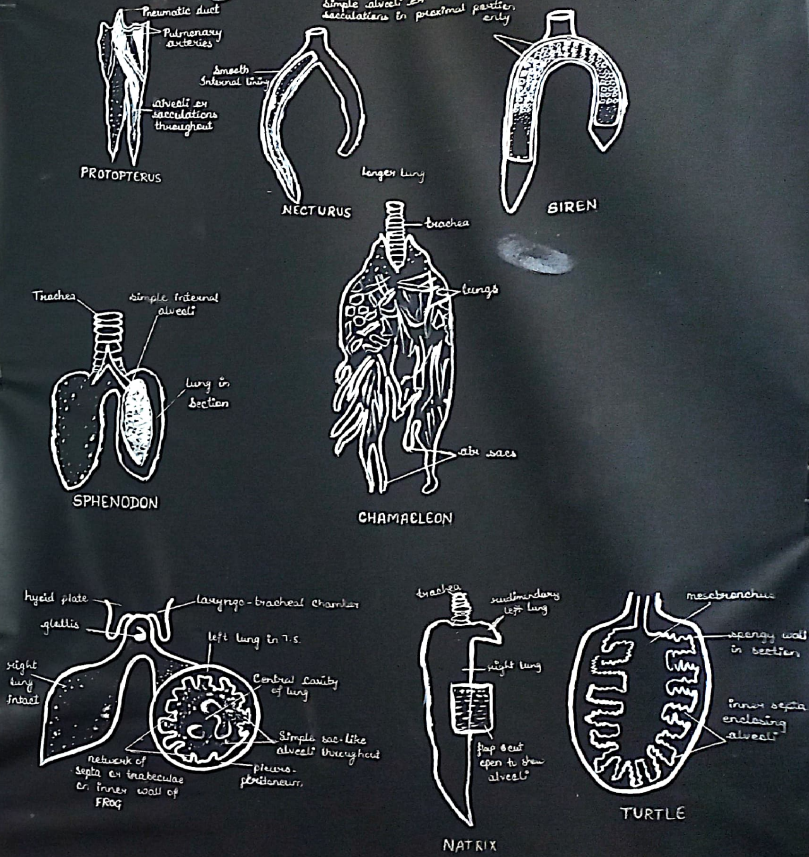 Pneumatic duct
Pulmonary
arteries
alveoli or
sacculations
throughout
PROTOPTERUS
Smooth
Internal lining
longer lung
NECTURUS
simple alveoli or
sacculations in proximal portion
only
SIREN
Trachea
simple internal
alveoli
lung in
section
SPHENODON
trachea
lungs
air sacs
CHAMAELEON
hyoid plate
glottis
right
lung
intact
laryngo-tracheal chamber
left lung in T.S.
Central cavity
of lung
Simple sac-like
alveoli throughout
pleuro-
peritoneum
network of
septa or trabeculae
on inner wall of
FROG
trachea
rudimentary
left lung
right lung
flap cut
open to show
alveoli
NATRIX
mesobronchus
spongy wall
in section
inner septa
enclosing
alveoli
TURTLE